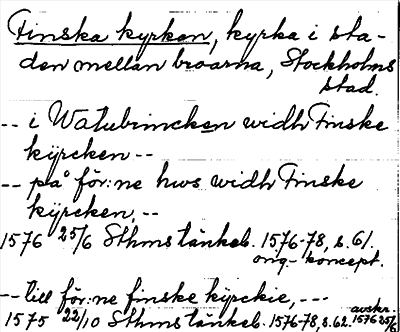 Finska kyrkan, kyrka i sta-
den mellan broarna, Stockholms
stad.
-- i Watubrincken widh Finske
kÿrcken --
-- på för:ne hws widh Finske
kÿrcken, --
1576 25/6 Sthms tänkeb. 1576-78, s. 61.
orig.- koncept.
-- till för:ne finske kÿrckie, ---
1575 22/10 Sthms tänkeb. 1576-78, s. 62. avskr.
1576 25/6